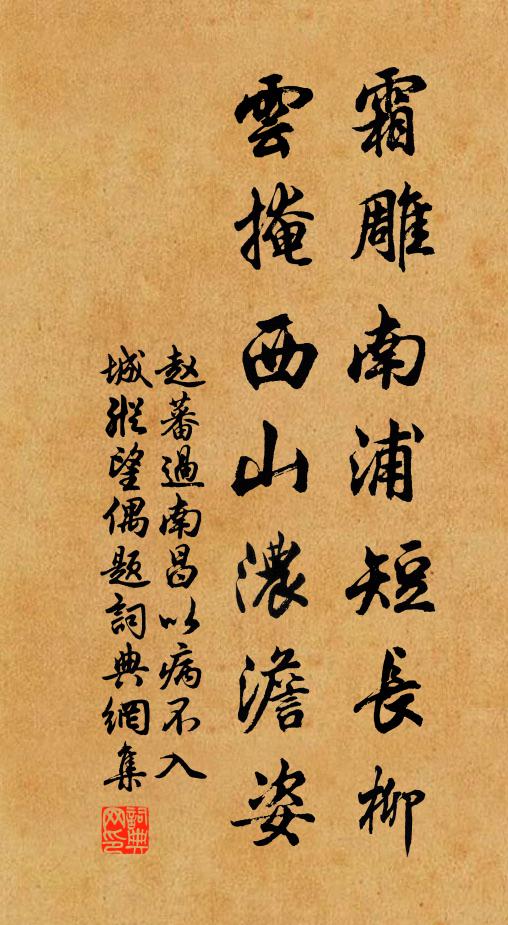 霜雕南浦短長柳
雲掩西山濃澹姿
赵蕃過南昌以病不入
城縱望偶題詞典網集
詞典
网印